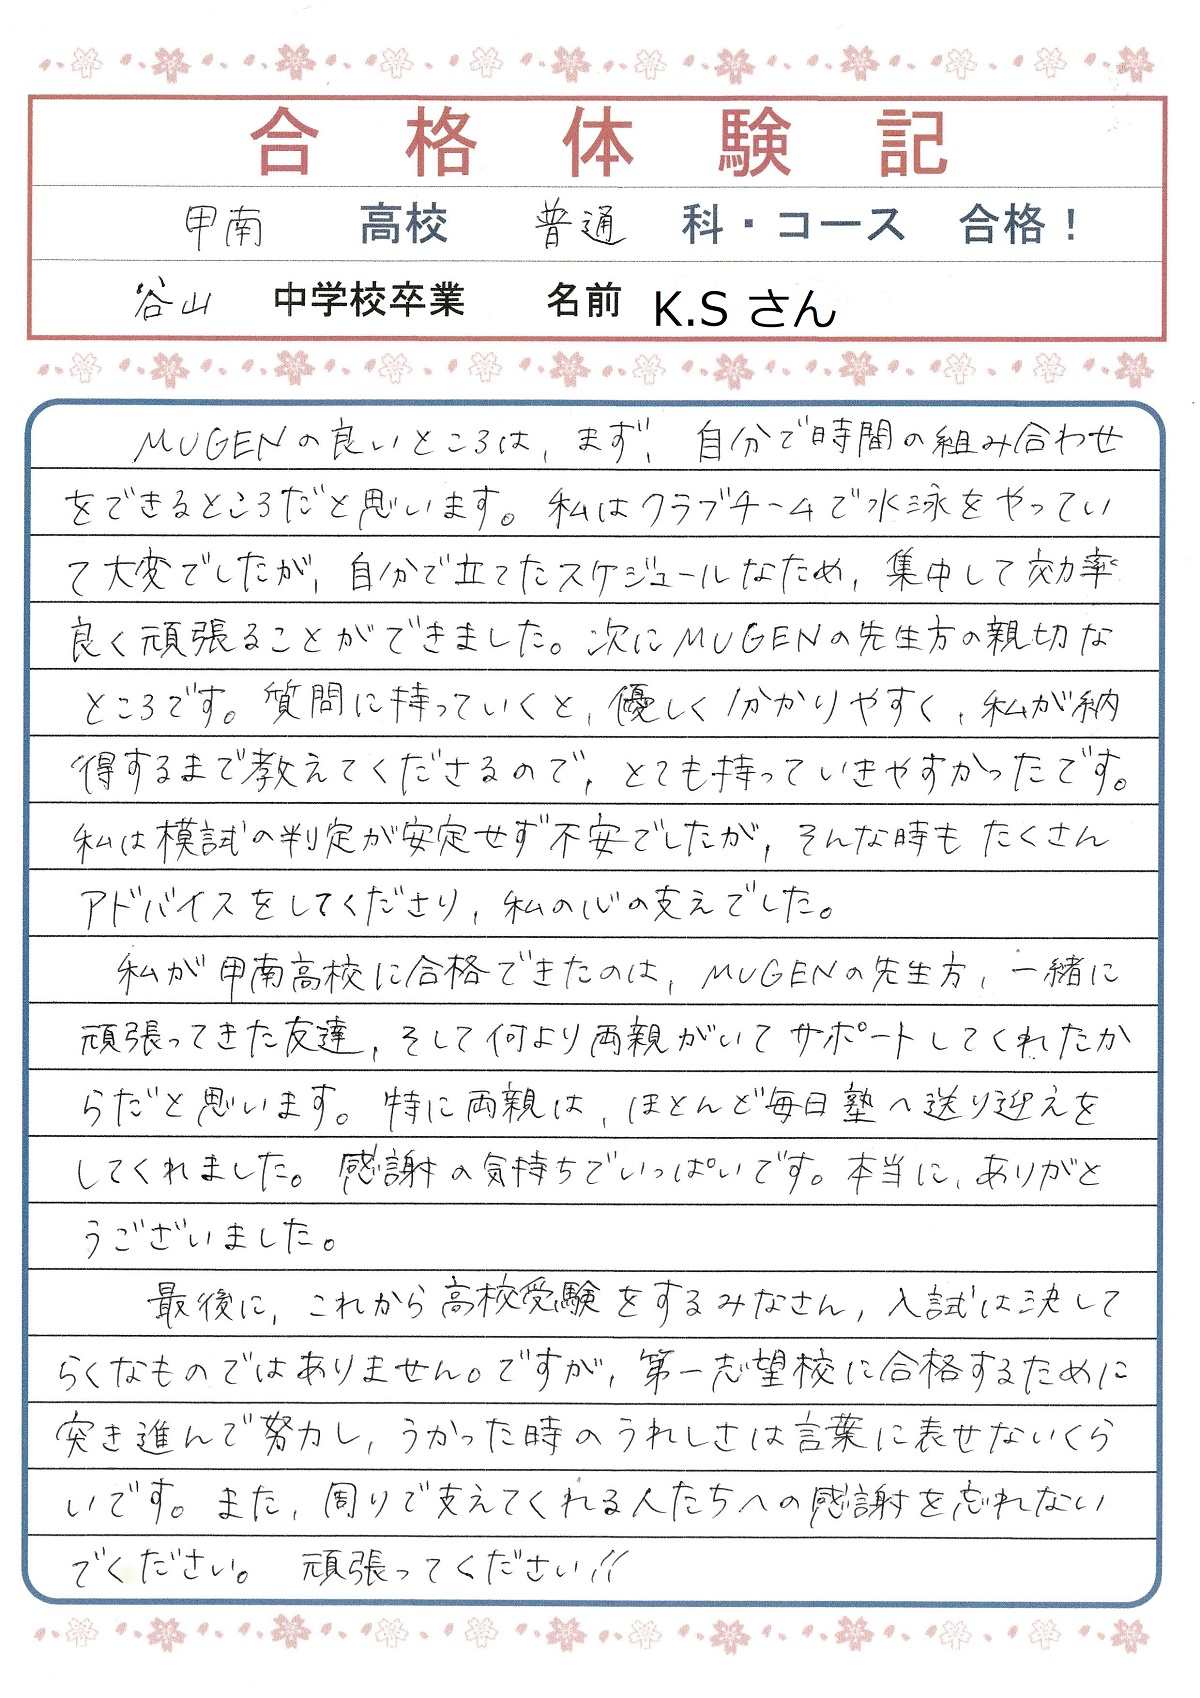 合格体験記
甲南 高校 普通 科・コース 合格！
谷山 中学校卒業 名前 K.S さん
MUGENの良いところは、まず、自分で時間の組み合わせ
をできるところだと思います。私はクラブチームで水泳をやってい
て大変でしたが、自分で立てたスケジュールなため、集中して効率
良く頑張ることができました。次にMUGENの先生方の親切な
ところです。質問に持っていくと、優しく分かりやすく、私が納
得するまで教えてくださるので、とても持っていきやすかったです。
私は模試の判定が安定せず不安でしたが、そんな時もたくさん
アドバイスをしてくださり、私の心の支えでした。
私が甲南高校に合格できたのは、MUGENの先生方、一緒に
頑張ってきた友達、そして何より両親がいてサポートしてくれたか
らだと思います。特に両親は、ほとんど毎日塾へ送り迎えを
してくれました。感謝の気持ちでいっぱいです。本当に、ありがと
うございました。
最後に、これから高校受験をするみなさん、入試は決して
らくなものではありません。ですが、第一志望校に合格するために
突き進んで努力し、うかった時のうれしさは言葉に表せないくら
いです。また、周りで支えてくれる人たちへの感謝を忘れない
でください。 頑張ってください!!